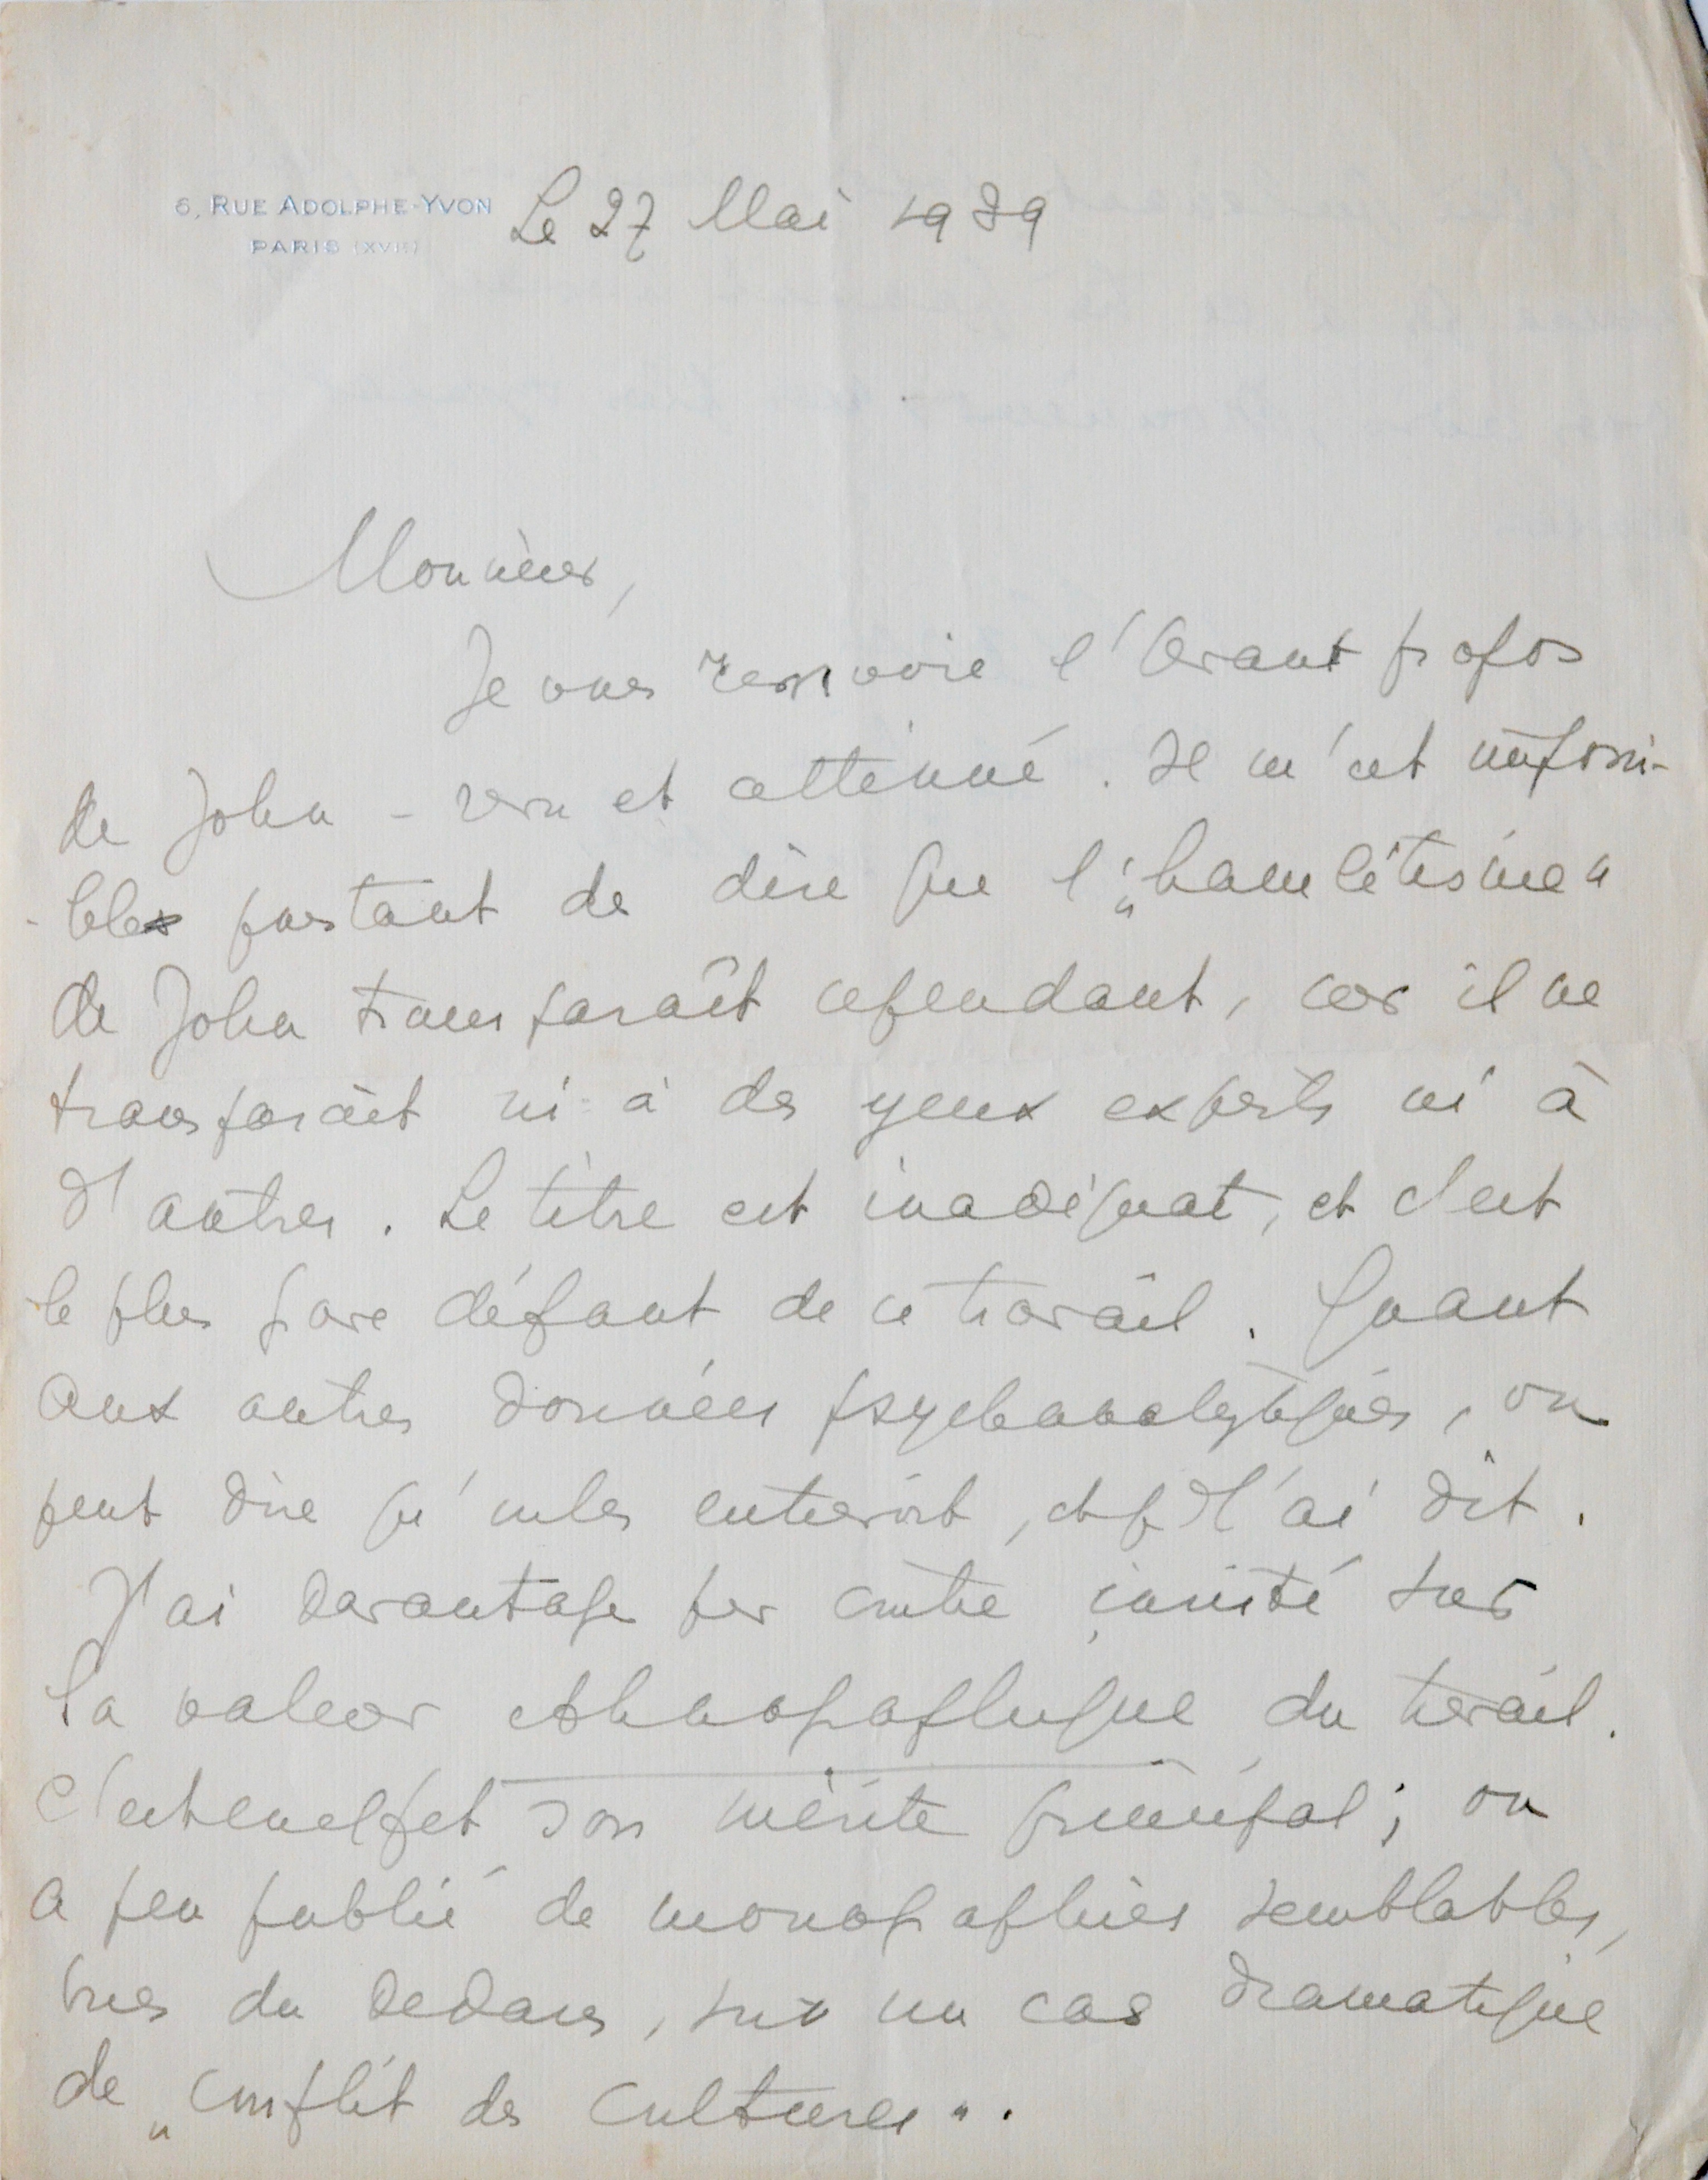 6, RUE ADOLPHE-YVON
PARIS (XVIE)
Le 27 Mai 1939
Monsieur,
Je vous renvoie l'Avant propos
de John - revu et atténué. Il m'est impossi-
-ble pourtant de dire que l'"hamlétisme"
de John transparaît cependant, car il ne
transparaît ni à des yeux experts ni à
d'autres. Le titre est inadéquat, et c'est
le plus grave défaut de ce travail. Quant
aux autres données psychanalytiques, on
peut dire qu'elles entrevoit, et je l'ai dit.
J'ai davantage par contre insisté sur
la valeur ethnographique du travail.
C'est en effet son mérite principal; on
a peu publié de monographies semblables,
vues du dedans, sur un cas dramatique
de "conflit des cultures".